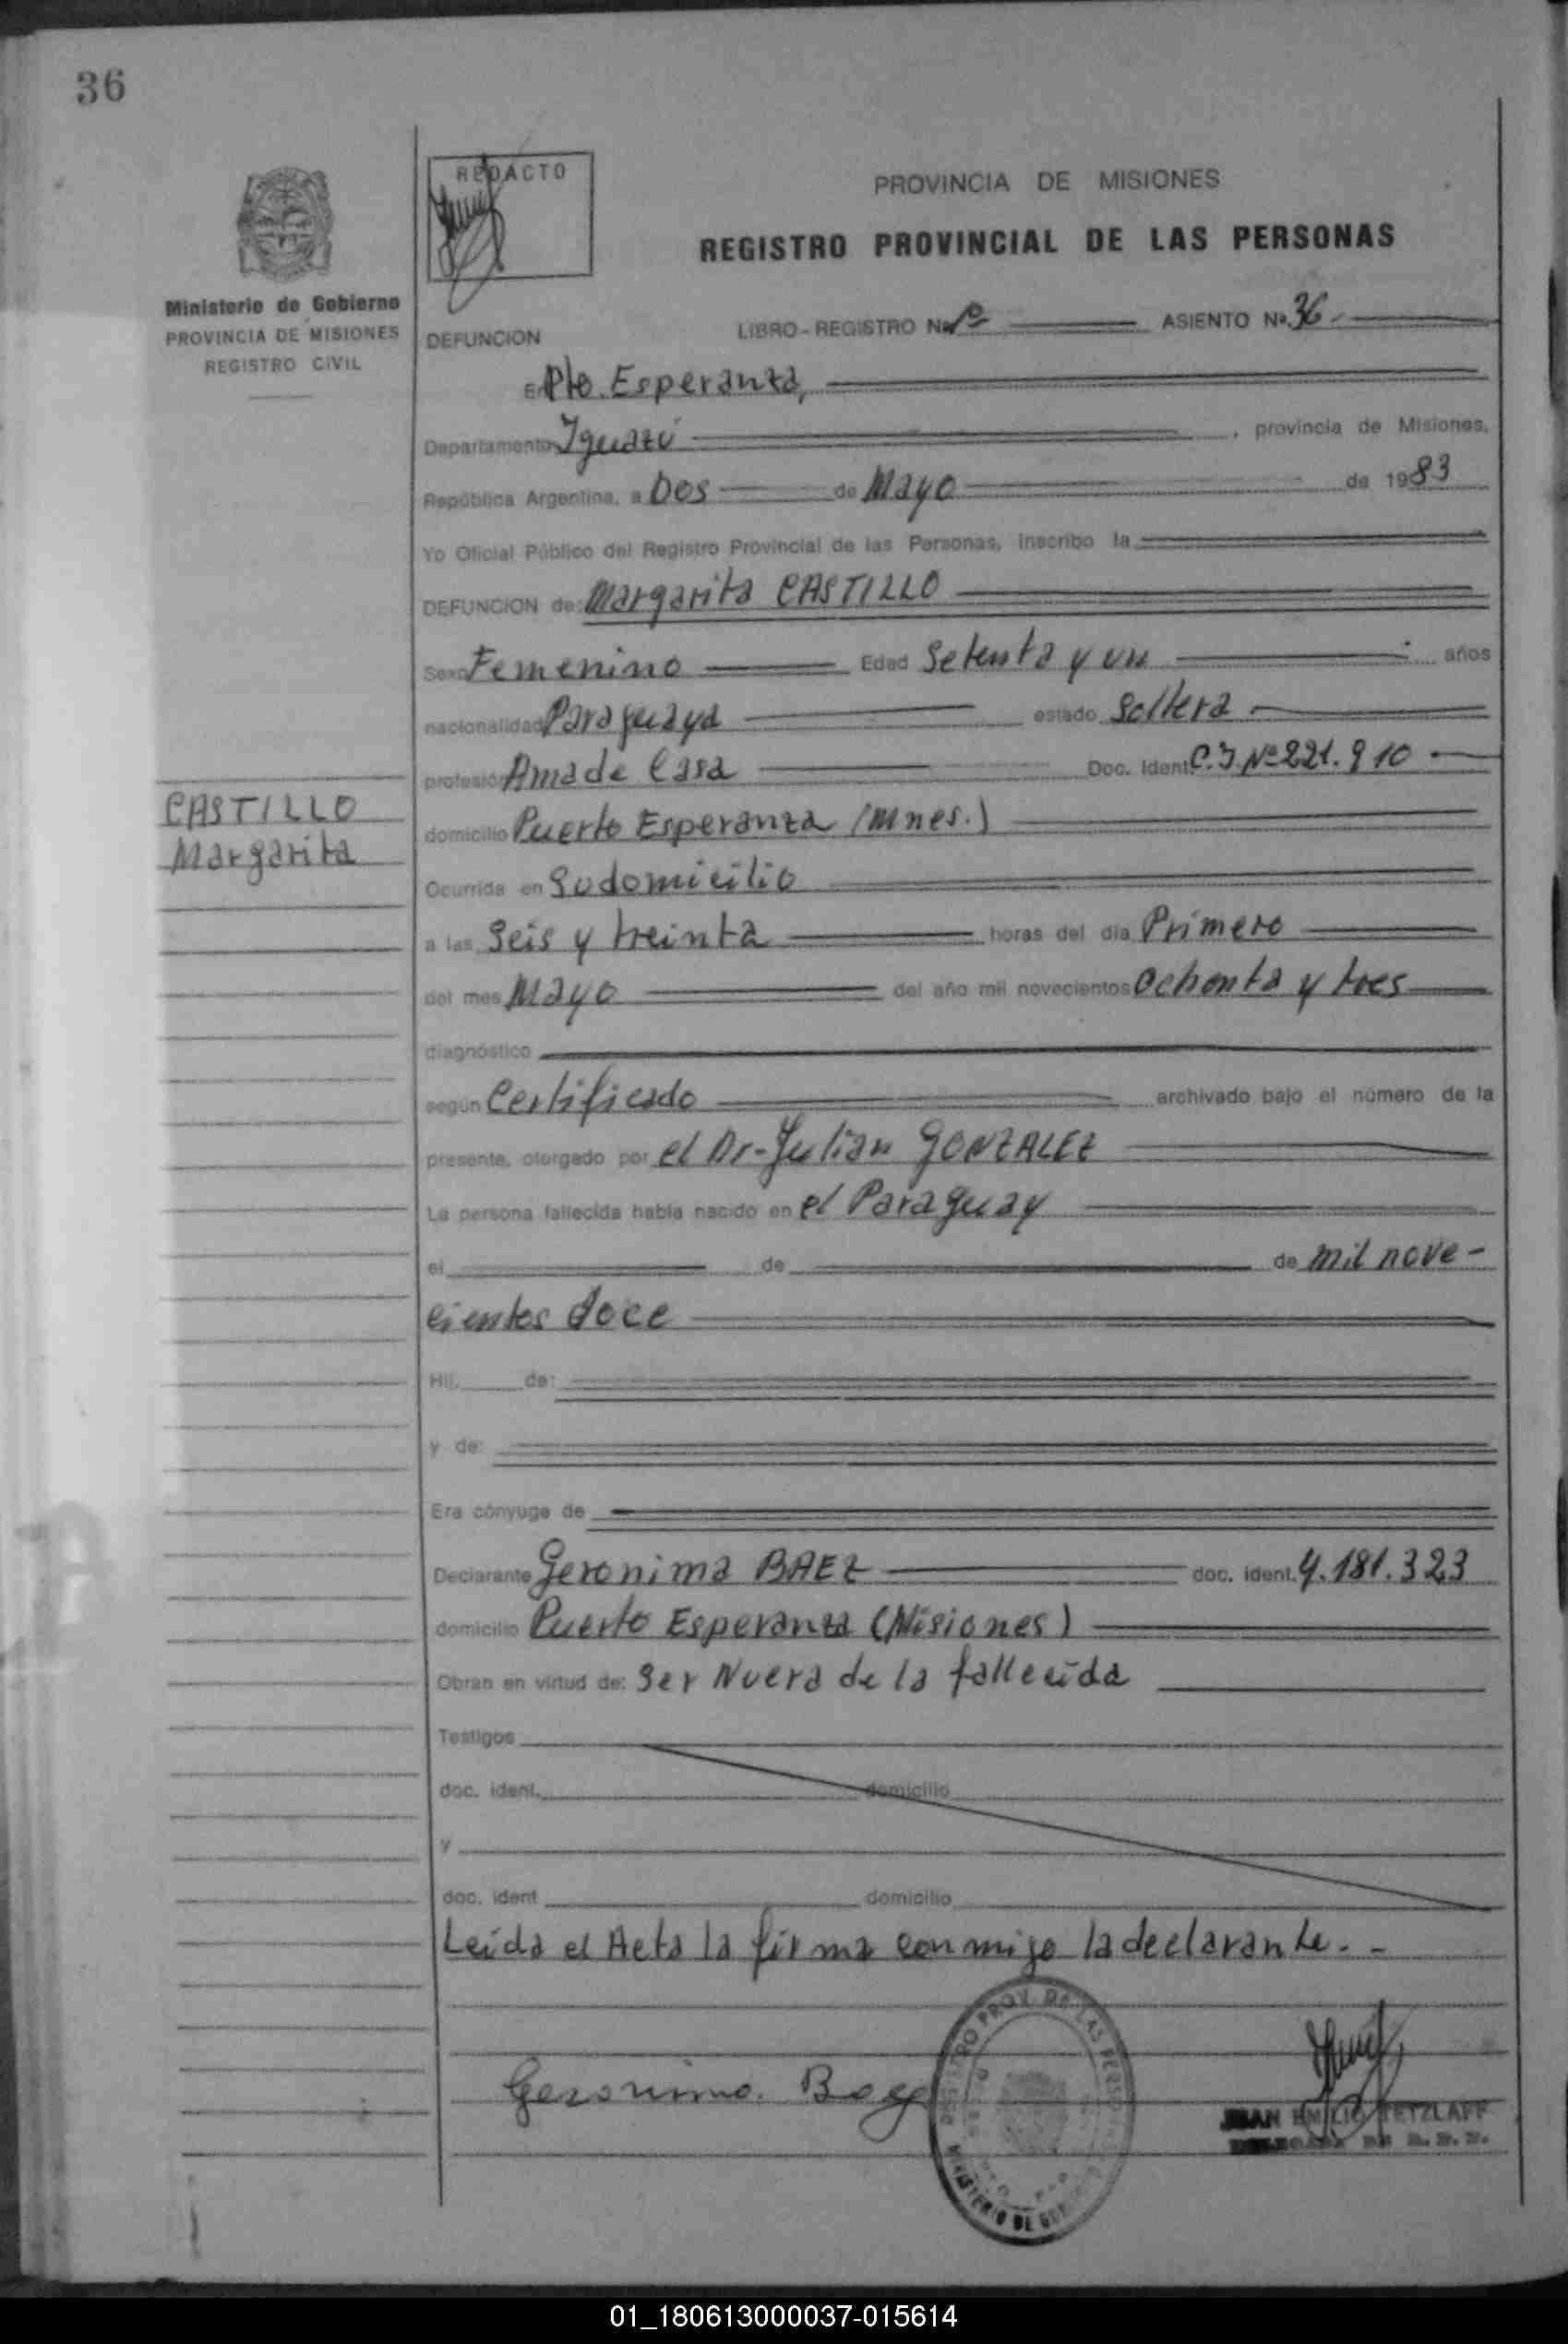 36
REDACTO
PROVINCIA DE MISIONES
REGISTRO PROVINCIAL DE LAS PERSONAS
Ministerio de Gobierno
PROVINCIA DE MISIONES
REGISTRO CIVIL
DEFUNCION
LIBRO - REGISTRO Nº 1º ASIENTO Nº 36.-
En Pto. Esperanza,
Departamento Iguazú, provincia de Misiones,
República Argentina, a Dos de Mayo de 1983
Yo Oficial Público del Registro Provincial de las Personas, inscribo la
DEFUNCION de: Margarita CASTILLO
Sexo Femenino Edad Setenta y un años
nacionalidad Paraguaya estado Soltera
profesión Ama de Casa Doc. Ident. C.I. Nº 221.910
CASTILLO
Margarita
domicilio Puerto Esperanza (Mnes.)
Ocurrida en Su domicilio
a las Seis y treinta horas del día Primero
del mes Mayo del año mil novecientos Ochenta y tres
diagnóstico
según Certificado archivado bajo el número de la
presente, otorgado por el Dr. Julian GONZALEZ
La persona fallecida había nacido en el Paraguay
el de de mil nove-
cientos doce
Hij. de:
y de:
Era cónyuge de
Declarante Geronima BAEZ doc. ident. 4.181.323
domicilio Puerto Esperanza (Misiones)
Obran en virtud de: Ser Nuera de la fallecida
Testigos
doc. ident. domicilio
y
doc. ident domicilio
Leída el Acta la firma conmigo la declarante.-
Geronima. Baez
REGISTRO PROV. DE LAS PERSONAS
MINISTERIO DE GOBIERNO
JUAN EMILIO TETZLAFF
01_180613000037-015614